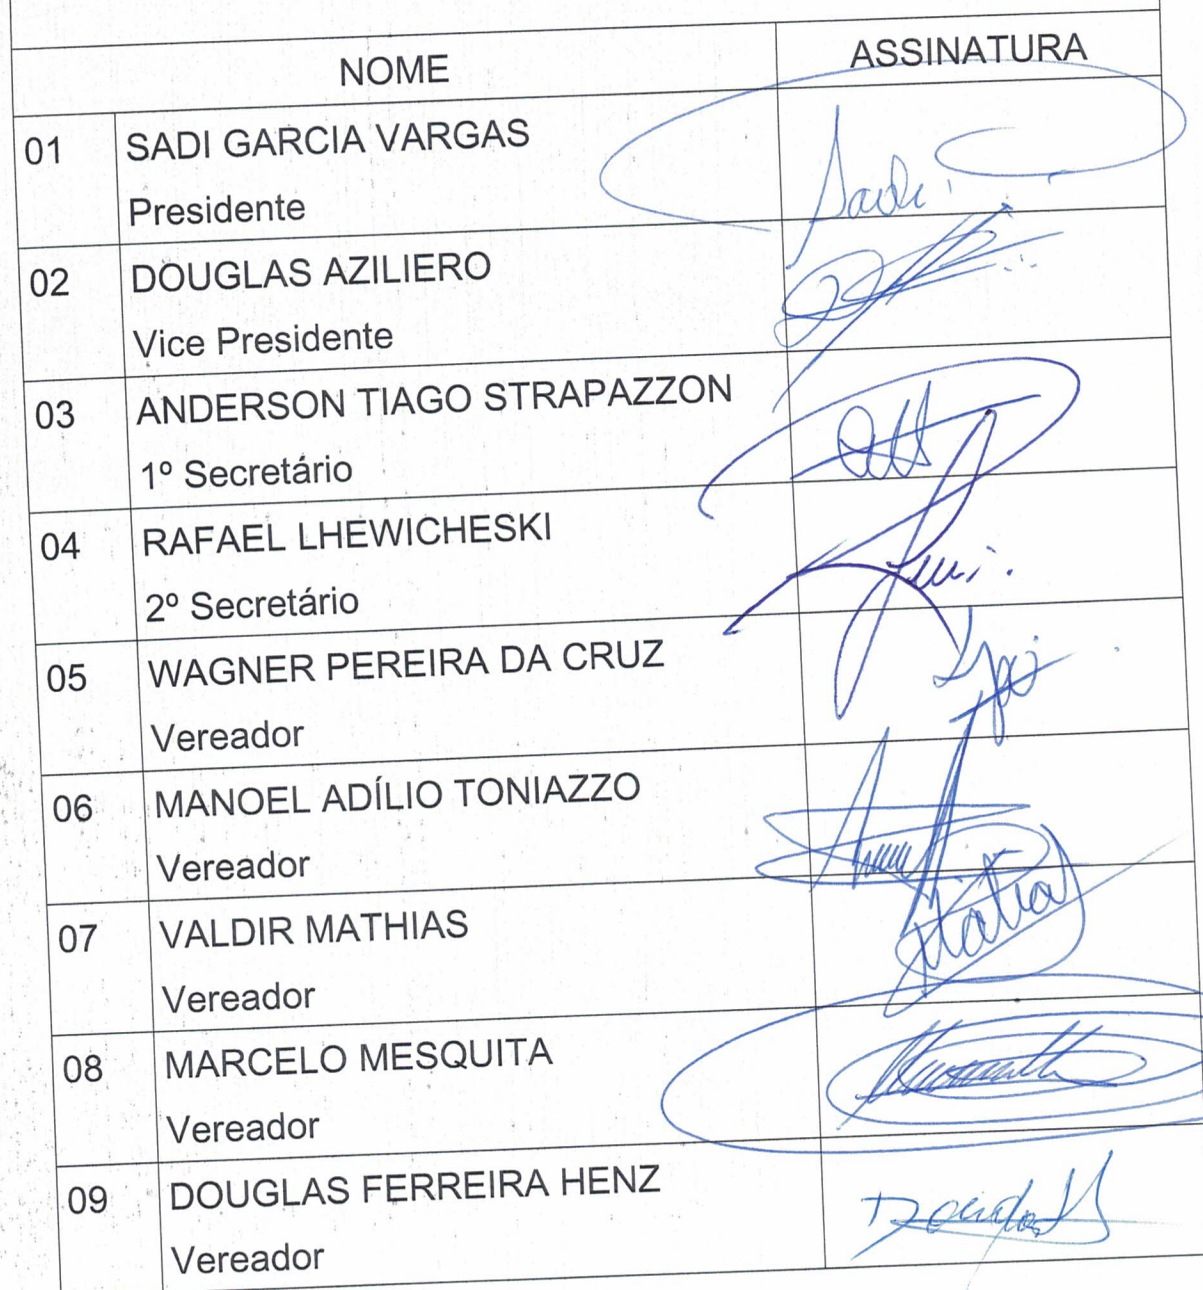 NOME ASSINATURA
01 SADI GARCIA VARGAS
Presidente
Sadi
02 DOUGLAS AZILIERO
Vice Presidente
03 ANDERSON TIAGO STRAPAZZON
1º Secretário
04 RAFAEL LHEWICHESKI
2º Secretário
05 WAGNER PEREIRA DA CRUZ
Vereador
06 MANOEL ADÍLIO TONIAZZO
Vereador
07 VALDIR MATHIAS
Vereador
08 MARCELO MESQUITA
Vereador
09 DOUGLAS FERREIRA HENZ
Vereador